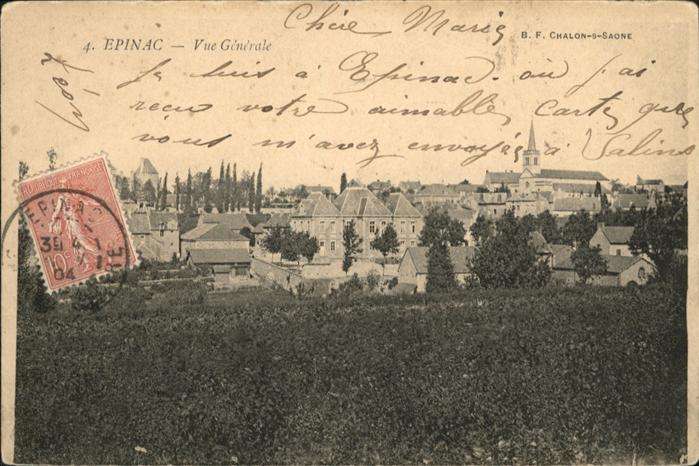 Chère Marie
4. EPINAC — Vue Générale
B. F. CHALON-S-SAONE
Je suis à Epinac. où j'ai
reçu votre aimable carte que
vous m'avez envoyée à Salins
voir
EPINAC
04
10c